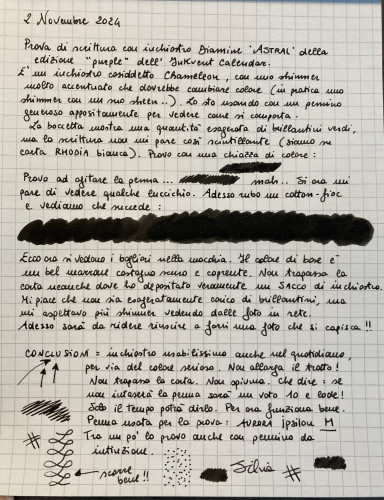 2 Novembre 2024
Prova di scrittura con inchiostro Diamine 'ASTRAL' della
edizione "purple" dell' InKvent Calendar.
E' un inchiostro cosiddetto Chameleon, con uno shimmer
molto accentuato che dovrebbe cambiare colore (in pratica uno
shimmer con un suo sheen..). Lo sto usando con un pennino
generoso appositamente per vedere come si comporta.
La boccetta mostra una quantità esagerata di brillantini verdi,
ma la scrittura non mi pare così scintillante (siamo su
carta RHODIA bianca). Provo con una chiazza di colore:
Provo ad agitare la penna... mah.. Si ora mi
pare di vedere qualche luccichio. Adesso rubo un cotton-fioc
e vediamo che succede:
Ecco ora si vedono i bagliori nella macchia. Il colore di base è
un bel marrone castagna scuro e coprente. Non trapassa la
carta neanche dove ho depositato veramente un SACCO di inchiostro.
Mi piace che non sia esageratamente carico di brillantini, ma
mi aspettavo più shimmer vedendo dalle foto in rete.
Adesso sarà da ridere riuscire a farci una foto che si capisca!!
CONCLUSIONI = inchiostro usabilissimo anche nel quotidiano,
per via del colore serioso. Non allarga il tratto!
Non trapassa la carta. Non spiuma. Che dire: se
non intaserà la penna sarà un voto 10 e lode!
Solo il tempo potrà dirlo. Per ora funziona bene.
Penna usata per la prova: AURORA Ipsilon M
Tra un po' lo provo anche con pennino da
intinzione.
scorre
bene!!
Silvia